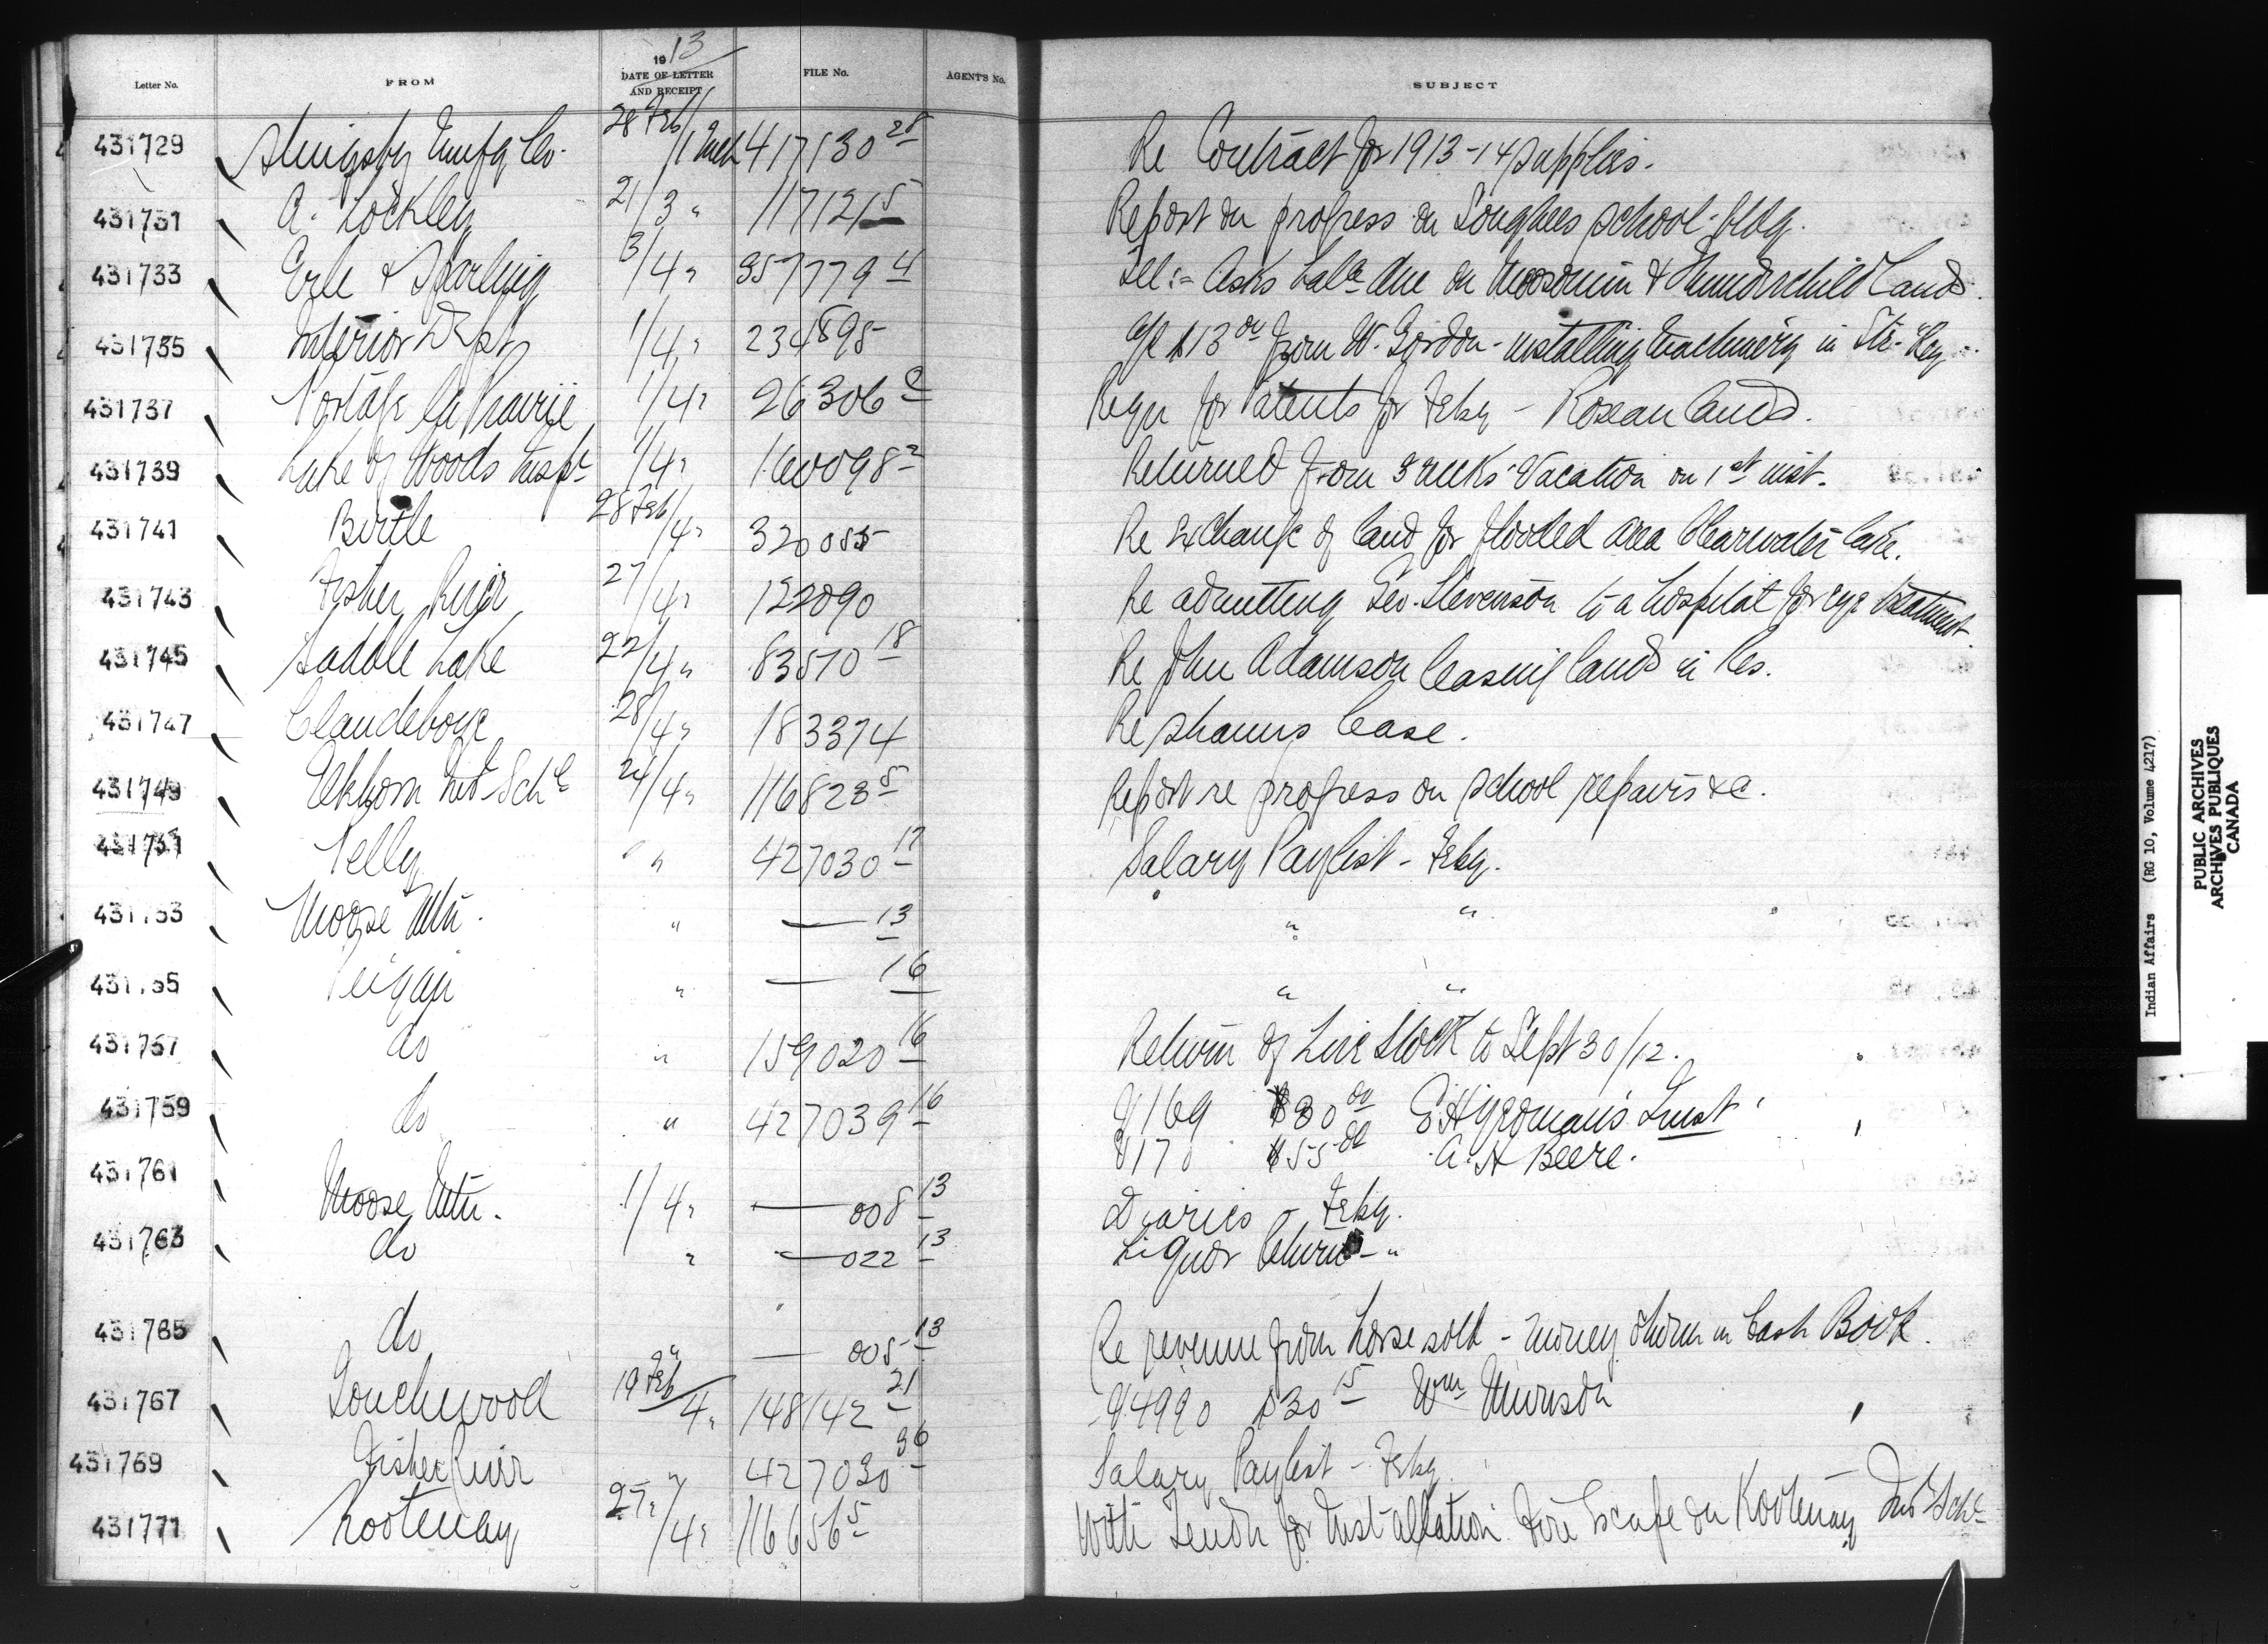 1913
Letter No. FROM DATE OF LETTER AND RECEIPT FILE No. AGENT'S No. SUBJECT
431729 Slingsby Mnfg Co. 28 Feb/1 Mch 417130 28 Re Contract for 1913-14 supplies.
431731 A. Lockley 21/3 " 117121 5 Report on progress on Songhees school bldg.
431733 Erle & Sparling 3/4 " 357779 4 Tel:- Asks balce due on Moosomin & Thunderchild Lands.
431735 Interior Dept 1/4 " 234898 $13 00 from W. Gordon - installing machinery in Str.
431737 Portage la Prairie 1/4 " 26306 2 Requ for Patents for Feby - Roseau lands.
431739 Lake of Woods Inspr 1/4 " 160098 2 Returned from 3 weeks Vacation on 1st inst.
431741 Birtle 28 Feb/4 " 320055 Re Exchange of land for flooded area Clearwater Lake.
431743 Fisher River 27/4 " 122090 Re admitting Geo. Stevenson to a hospital for eye treatment
431745 Saddle Lake 22/4 " 83570 18 Re John Adamson leasing lands in Res.
431747 Clandeboye 28/4 " 183374 Re Shanns lease.
431749 Elkhorn Inst Schl 24/4 " 116823 5 Report re progress on school repairs &c.
431751 Pelly " " 427030 17 Salary Paylist - Feby.
431753 Moose Mtn. " — 13 " "
431755 Peigan " — 16 " "
431757 do " 159020 16 Return of Live Stock to Sept 30/12.
431759 do " 427039 16 169 $30 00 E H Yeomans Trust
170 $55 00 A. H Beere.
431761 Moose Mtn. 1/4 " — 008 13 Diaries - Feby.
431763 do " — 022 13 Liquor Return - "
431765 do " — 005 13 Re revenue from horse sold - money shown in Cash Book.
431767 Touchwood 19 Feb/4 " 148142 21 4990 $30 15 Wm Munson
431769 Fisher River " 427030 36 Salary Paylist - Feby
431771 Kootenay 27/4 " 116656 5 With Tender for Installation Fire Escape on Kootenay Ind Schl
Indian Affairs (RG 10, Volume 4217)
PUBLIC ARCHIVES
ARCHIVES PUBLIQUES
CANADA